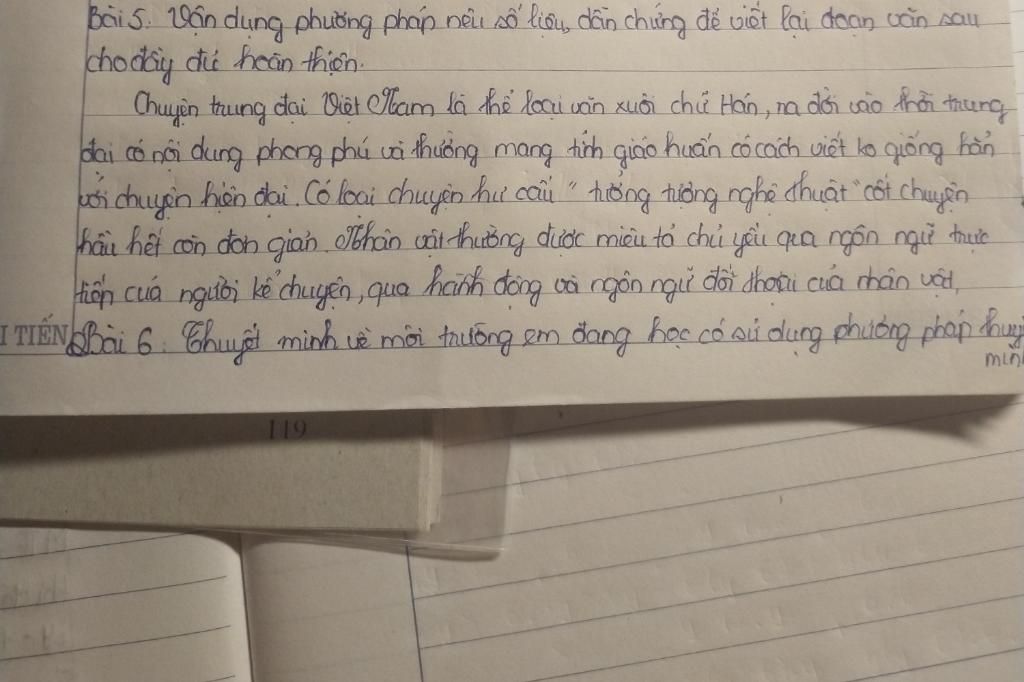 Bài 5. Vận dụng phương pháp nêu số liệu, dẫn chứng để viết lại đoạn văn sau
cho đầy đủ hoàn thiện.
Chuyện trung đại Việt Nam là thể loại văn xuôi chữ Hán, ra đời vào thời trung
đại có nội dung phong phú và thường mang tính giáo huấn có cách viết ko giống hẳn
với chuyện hiện đại. Có loại chuyện hư cấu " tưởng tượng nghệ thuật " cốt chuyện
hầu hết còn đơn giản. Nhân vật thường được miêu tả chủ yếu qua ngôn ngữ trực
tiếp của người kể chuyện, qua hành động và ngôn ngữ đối thoại của nhân vật,
I TIẾN
Bài 6. Thuyết minh về môi trường em đang học có sử dụng phương pháp thuyế
minh
119